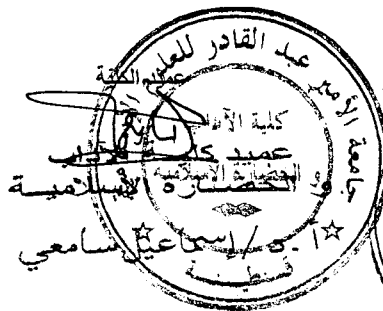 جامعة الأمير عبد القادر للعلوم
عميد الكلية
كلية الآداب
عميد كلية الآداب
و الحضارة الإسلامية
أ.د/إسماعيل سامعي
قسنطينة